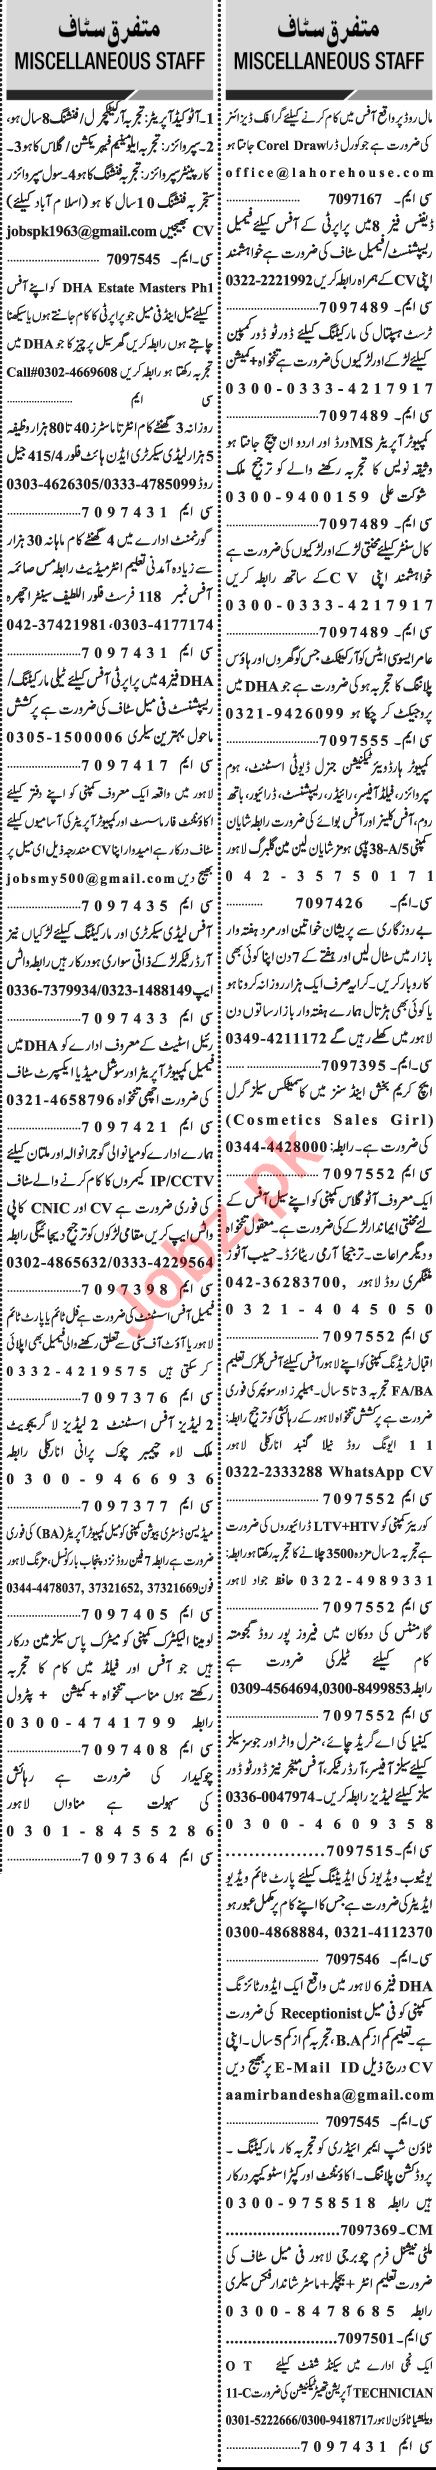 متفرق سٹاف
MISCELLANEOUS STAFF
مال روڈ پر واقع آفس میں کام کرنے کیلئے گرافک ڈیزائنر
کی ضرورت ہے جو کورل ڈرا Corel Draw جانتا ہو
office@lahorehouse.com
سی ایم۔ 7097167
ڈیفنس فیز 8 میں پراپرٹی کے آفس کیلئے فیمیل
ریسپشنسٹ/فیمیل سٹاف کی ضرورت ہے خواہشمند
اپنی CV کے ہمراہ رابطہ کریں 0322-2221992
سی ایم۔ 7097489
ٹرسٹ ہسپتال کی مارکیٹنگ کیلئے ڈور ٹو ڈور کمپین
کیلئے لڑکے اور لڑکیوں کی ضرورت ہے تنخواہ + کمیشن
0300-0333-4217917
سی ایم۔ 7097489
کمپیوٹر آپریٹر MS ورڈ اور اردو ان پیج جانتا ہو
وثیقہ نویس کا تجربہ رکھنے والے کو ترجیح ملک
شوکت علی 0300-9400159
سی ایم۔ 7097489
کال سنٹر کیلئے محنتی لڑکے اور لڑکیوں کی ضرورت ہے
خواہشمند اپنی CV کے ساتھ رابطہ کریں
0300-0333-4217917
سی ایم۔ 7097489
عامر ایسوسی ایٹس کو آرکیٹکٹ جس کو گھروں اور ہاؤس
پلاننگ کا تجربہ ہو کی ضرورت ہے جو DHA میں
پروجیکٹ کر چکا ہو 0321-9426099
سی ایم۔ 7097555
کمپیوٹر ہارڈویئر ٹیکنیشن جنرل ڈیوٹی اسسٹنٹ، ہوم
سپروائزر، فیلڈ آفیسر، رائیڈر، ریسپشنسٹ، ڈرائیور، باتھ
روم، آفس کلینر اور آفس بوائے کی ضرورت رابطہ شایان
کمپنی 38-A/5 ہومز شایان لین مین گلبرگ لاہور
042-35750171
سی۔ایم۔ 7097426
بے روزگاری سے پریشان خواتین اور مرد ہفتہ وار
بازار میں سٹال لیں اور ہفتے کے 7 دن اپنا کوئی بھی
کاروبار کریں۔ کرایہ صرف ایک ہزار روزانہ کرونا ہو
یا کوئی بھی ہڑتال ہمارے ہفتہ وار بازار ساتوں دن
لاہور میں کھلے رہیں گے 0349-4211172
سی۔ایم۔ 7097395
ایچ کریم بخش اینڈ سنز میں کاسمیٹکس سیلز گرل
(Cosmetics Sales Girl)
کی ضرورت ہے۔ رابطہ: 0344-4428000
سی ایم 7097552
ایک معروف آٹو گلاس کمپنی کو اپنے سیل آفس کے
لئے محنتی ایماندار لڑکے کی ضرورت ہے۔ معقول تنخواہ
و دیگر مراعات۔ ترجیحاً آرمی ریٹائرڈ۔ حسیب آٹوز
منٹگمری روڈ لاہور 042-36283700,
0321-4045050
سی ایم 7097552
اقبال ٹریڈنگ کمپنی کو اپنے لاہور آفس کیلئے آفس کلرک تعلیم
FA/BA تجربہ 3 تا 5 سال۔ ہیلپرز اور سویپر کی فوری
ضرورت ہے پرکشش تنخواہ لاہور کے رہائشی کو ترجیح رابطہ:
11 ایونگ روڈ نیلا گنبد انارکلی لاہور
0322-2333288 WhatsApp CV
سی ایم 7097552
کوریئر کمپنی کو LTV+HTV ڈرائیوروں کی ضرورت
ہے تجربہ 2 سال مزدہ 3500 چلانے کا تجربہ رکھتا ہو رابطہ:
حافظ جواد لاہور 0322-4989331
سی ایم 7097552
گارمنٹس کی دوکان میں فیروز پور روڈ گجومتہ
کام کیلئے ٹیلر کی ضرورت ہے
رابطہ 0309-4564694,0300-8499853
سی ایم 7097552
کینیا کی اے گریڈ چائے، منرل واٹر اور جوسز سیلز
کیلئے سیلز آفیسر، آرڈر ٹیکر، آفس منیجر نیز ڈور ٹو ڈور
سیلز کیلئے لیڈیز رابطہ کریں۔ 0336-0047974
0300-4609358
سی ایم۔ 7097515
یوٹیوب ویڈیوز کی ایڈیٹنگ کیلئے پارٹ ٹائم ویڈیو
ایڈیٹر کی ضرورت ہے جس کا اپنے کام پر مکمل عبور ہو
0300-4868884, 0321-4112370
سی۔ایم۔ 7097546
DHA فیز 6 لاہور میں واقع ایک ایڈورٹائزنگ
کمپنی کو فی میل Receptionist کی ضرورت
ہے۔ تعلیم کم از کم B.A، تجربہ کم از کم 5 سال۔ اپنی
CV درج ذیل E-Mail ID پر بھیج دیں
aamirbandesha@gmail.com
سی۔ایم۔ 7097545
ٹاؤن شپ ایمبرائیڈری کو تجربہ کار مارکیٹنگ۔
پروڈکشن پلاننگ۔ اکاؤنٹنٹ اور کپڑا سٹور کیپر درکار
ہیں رابطہ 0300-9758518
CM۔7097369
ملٹی نیشنل فرم چوبرجی لاہور فی میل سٹاف کی
ضرورت تعلیم انٹر + بیچلر + ماسٹر شاندار فکس سیلری
رابطہ 0300-8478685
سی ایم۔ 7097501
ایک نجی ادارے میں سیکنڈ شفٹ کیلئے OT
TECHNICIAN آپریشن تھیٹر ٹیکنیشن کی ضرورت 11-C
ویلنشیا ٹاؤن لاہور 0301-5222666/0300-9418717
سی ایم 7097431
متفرق سٹاف
MISCELLANEOUS STAFF
1۔ آٹو کیڈ آپریٹر: تجربہ آرکیٹیکچرل/فنشنگ 8 سال ہو،
2۔ سپروائزر: تجربہ ایلومینیم فیبریکیشن/گلاس کا ہو 3۔
کارپینٹر سپروائزر: تجربہ فنشنگ کا ہو 4۔ سول سپروائزر
تجربہ فنشنگ 10 سال کا ہو (اسلام آباد کیلئے)
CV بھیجیں jobspk1963@gmail.com
سی۔ایم۔ 7097545
DHA Estate Masters Ph1 کو اپنے آفس
کیلئے میل اینڈ فی میل جو پراپرٹی کا کام جانتے ہوں یا سیکھنا
چاہتے ہوں رابطہ کریں گھر سیل پرچیز کا جو DHA میں
تجربہ رکھتا ہو رابطہ کریں Call#0302-4669608
سی ایم
روزانہ 3 گھنٹے کام انٹر تا ماسٹرز 40 تا 80 ہزار وظیفہ
5 ہزار لیڈی سیکرٹری ایڈن ہائٹ فلور 415/4 جیل
روڈ 0303-4626305/0333-4785099
سی ایم 7097431
گورنمنٹ ادارے میں 4 گھنٹے کام ماہانہ 30 ہزار
سے زیادہ آمدنی تعلیم انٹرمیڈیٹ رابطہ مس صائمہ
آفس نمبر 118 فرسٹ فلور اللطیف سینٹر اچھرہ
042-37421981 ,0303-4177174
سی ایم 7097431
DHA فیز 4 میں پراپرٹی آفس کیلئے ٹیلی مارکیٹنگ/
ریسپشنسٹ فی میل سٹاف کی ضرورت ہے پرکشش
ماحول بہترین سیلری 0305-1500006
سی ایم 7097417
لاہور میں واقعہ ایک معروف کمپنی کو اپنے دفتر کیلئے
اکاؤنٹنٹ فارماسسٹ اور کمپیوٹر آپریٹر کی آسامیوں کیلئے
سٹاف درکار ہے امیدوار اپنا CV مندرجہ ذیل ای میل پر
بھیج دیں jobsmy500@gmail.com
سی ایم 7097435
آفس لیڈی سیکرٹری اور مارکیٹنگ کیلئے لڑکیاں نیز
آرڈر ٹیکر لڑکے ذاتی سواری ہو درکار ہیں رابطہ واٹس
ایپ 0336-7379934/0323-1488149
سی ایم 7097433
رئیل اسٹیٹ کے معروف ادارے کو DHA میں
فیمیل کمپیوٹر آپریٹر اور سوشل میڈیا ایکسپرٹ سٹاف
کی ضرورت اچھی تنخواہ 0321-4658796
سی ایم 7097421
ہمارے ادارے کو میانوالی گوجرانوالہ اور ملتان کیلئے
IP/CCTV کیمروں کا کام کرنے والے سٹاف
کی فوری ضرورت ہے CV اور CNIC کاپی
واٹس ایپ کریں مقامی لڑکوں کو ترجیح دیجائیگی رابطہ
0302-4865632/0333-4229564
سی ایم 7097398
فیمیل آفس اسسٹنٹ کی ضرورت ہے فل ٹائم یا پارٹ ٹائم
لاہور یا آؤٹ آف سٹی سے تعلق رکھنے والی فیمیل بھی اپلائی
کر سکتی ہیں 0332-4219575
سی ایم 7097376
2 لیڈیز آفس اسسٹنٹ 2 لیڈیز لا گریجویٹ
ملک لاء چیمبر چوک پرانی انارکلی رابطہ
0300-9466936
سی ایم 7097377
میڈیسن ڈسٹری بیوشن کمپنی کو میل کمپیوٹر آپریٹر (BA) کی فوری
ضرورت ہے رابطہ 7 فین روڈ نزد پنجاب بار کونسل، مزنگ لاہور
فون 0344-4478037, 37321652, 37321669
سی ایم 7097405
لومینا الیکٹرک کمپنی کو میٹرک پاس سیلزمین درکار
ہیں جو آفس اور فیلڈ میں کام کا تجربہ
رکھتے ہوں مناسب تنخواہ + کمیشن + پٹرول
رابطہ 0300-4741799
سی ایم 7097408
چوکیدار کی ضرورت ہے رہائش
کی سہولت ہے مناواں لاہور
0301-8455286
سی ایم 7097364
Jobz.pk